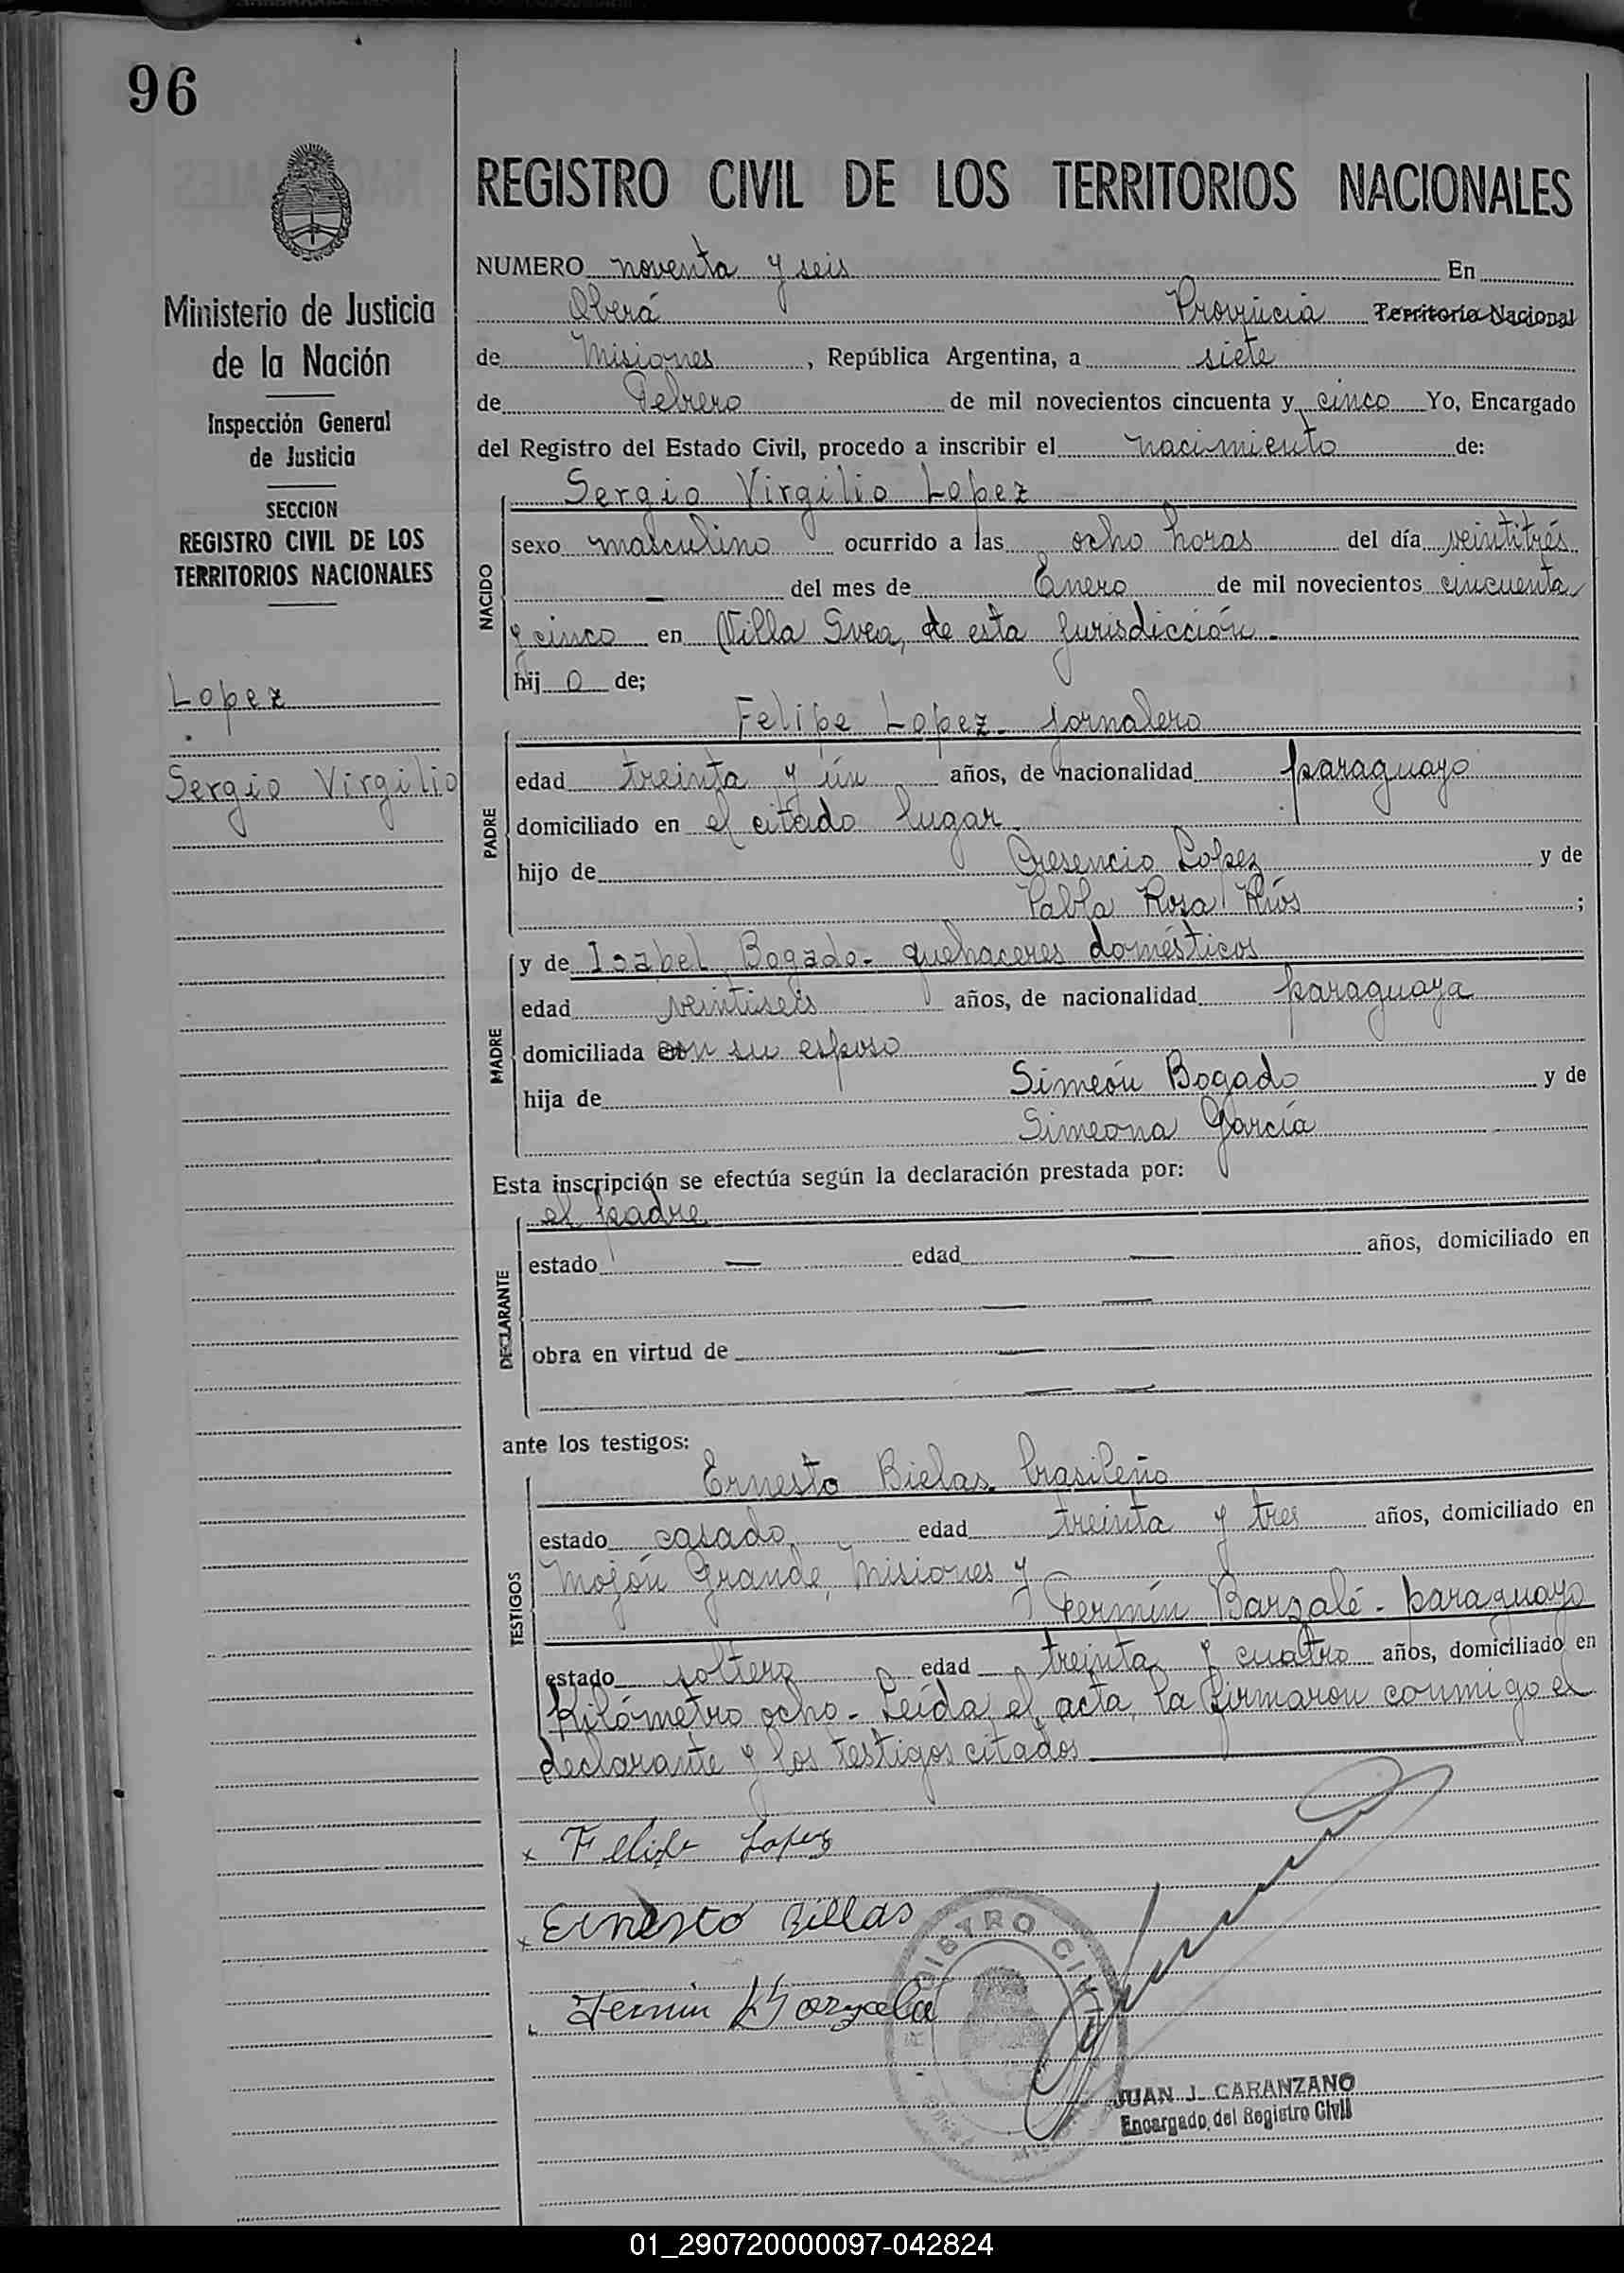 96
REGISTRO CIVIL DE LOS TERRITORIOS NACIONALES
Ministerio de Justicia
de la Nación
Inspección General
de Justicia
SECCION
REGISTRO CIVIL DE LOS
TERRITORIOS NACIONALES
Lopez
Sergio Virgilio
NUMERO noventa y seis En
Oberá Provincia Territorio Nacional
de Misiones, República Argentina, a siete
de Febrero de mil novecientos cincuenta y cinco Yo, Encargado
del Registro del Estado Civil, procedo a inscribir el nacimiento de:
NACIDO
Sergio Virgilio Lopez
sexo masculino ocurrido a las ocho horas del día veintitrés
— del mes de Enero de mil novecientos cincuenta
y cinco en Villa Svea, de esta jurisdicción.-
hij o de;
PADRE
Felipe Lopez - jornalero
edad treinta y ún años, de nacionalidad paraguayo
domiciliado en el citado lugar.
hijo de Cresencio Lopez y de
Pabla Rosa Ríos ;
MADRE
y de Isabel Bogado - quehaceres domésticos
edad veintiseis años, de nacionalidad paraguaya
domiciliada con su esposo
hija de Simeón Bogado y de
Simeona García
Esta inscripción se efectúa según la declaración prestada por:
DECLARANTE
el padre
estado — edad — años, domiciliado en
— —
obra en virtud de — —
— —
ante los testigos:
TESTIGOS
Ernesto Bielas. brasileño
estado casado edad treinta y tres años, domiciliado en
Mojón Grande, Misiones y
Fermín Barzalé - paraguayo
estado soltero edad treinta y cuatro años, domiciliado en
Kilómetro ocho - Leída el acta, la firmaron conmigo el
declarante y los testigos citados
x Felipe Lopez
x Ernesto Billas
Fermin Barzala
REGISTRO CIVIL
JUAN J. CARANZANO
Encargado del Registro Civil
01_290720000097-042824